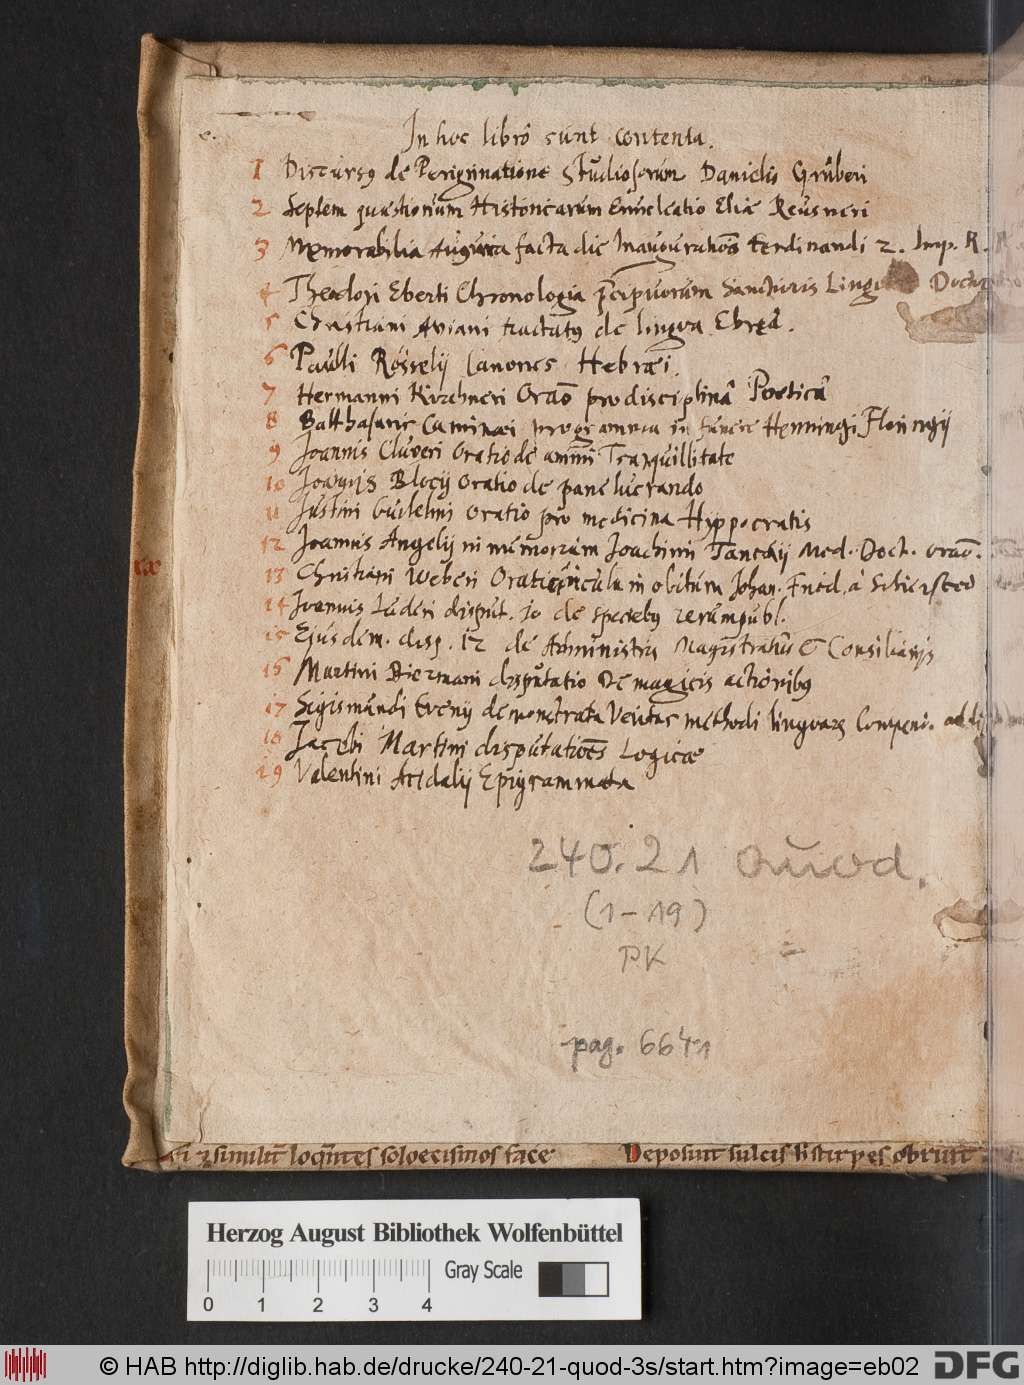 In hoc libro sunt contenta.
1 Discursꝰ de Perigrinatione Studiosorum Danielis Gruberi
2 Septem quæstionum Historicarum Enucleatio Eliæ Reusneri
3 Memorabilia Augusta facta die Inaugurationis Ferdinandi 2. Imp. R.
4 Theodori Eberti Chronologia præcipuorum Sanctioris Linguæ Doctorum
5 Christiani Aviani tractatꝰ de lingua Ebręa.
6 Paulli Rösselij Canones Hebræi.
7 Hermanni Kirchneri Orao pro disciplina Poetica
8 Balthasaris Caminæi programma in funere Henningi Floringij
9 Joannis Cluveri Oratio de animi Tranquillitate
10 Blocij Oratio de pane lucrando
11 Justini Gulielmi Oratio pro medicina Hyppocratis
12 Joannis Angelij in memoriam Joachimi Tanckij Med. Doct. orao.
13 Christiani Weberi Oratiuncula in obitum Johan. Frid. à
14 Joannis Luderi disput. 10 de speciebꝰ rerumpubl.
15 Ejusdem. disp. 12 de Administris Magistratus & Consiliarijs
16 Martini Biermani disputatio de magicis actionibꝰ
17 Sigismundi Evenij demonstrata Veritas methodi linguarꝝ Compend.
18 Jacobi Martini disputationes Logicæ
19 Valentini Acidalij Epigrammata
240.21 Quod.
(1-19)
PK
pag. 6641
loquentes soloecismos face Deponunt sulcis obruit
Herzog August Bibliothek Wolfenbüttel
Gray Scale
0 1 2 3 4
© HAB http://diglib.hab.de/drucke/240-21-quod-3s/start.htm?image=eb02 DFG